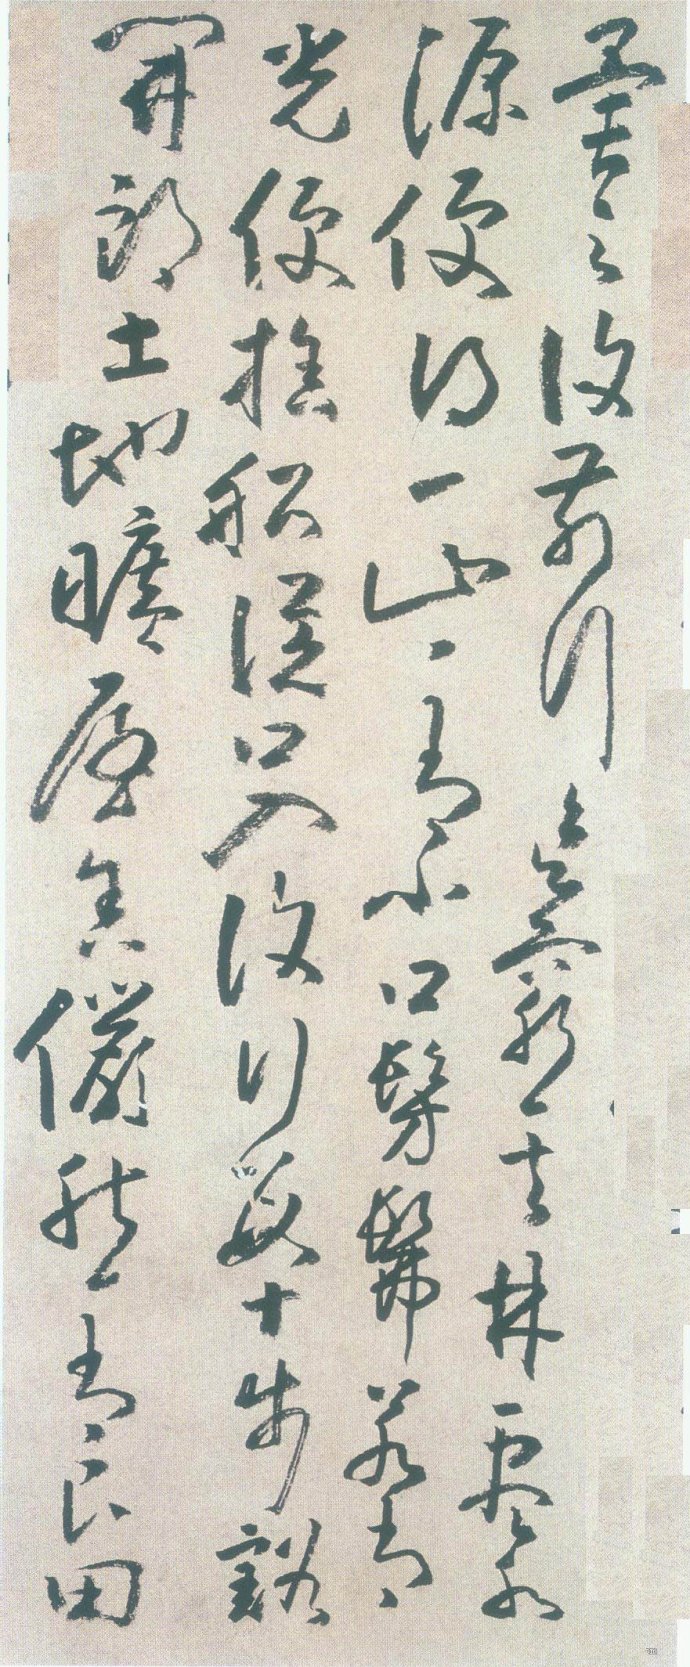 異之復前行欲窮其林盡水
源便得一山山有小口髣髴若有
光便捨船從口入復行數十步豁
開朗土地曠屋舍儼然有良田